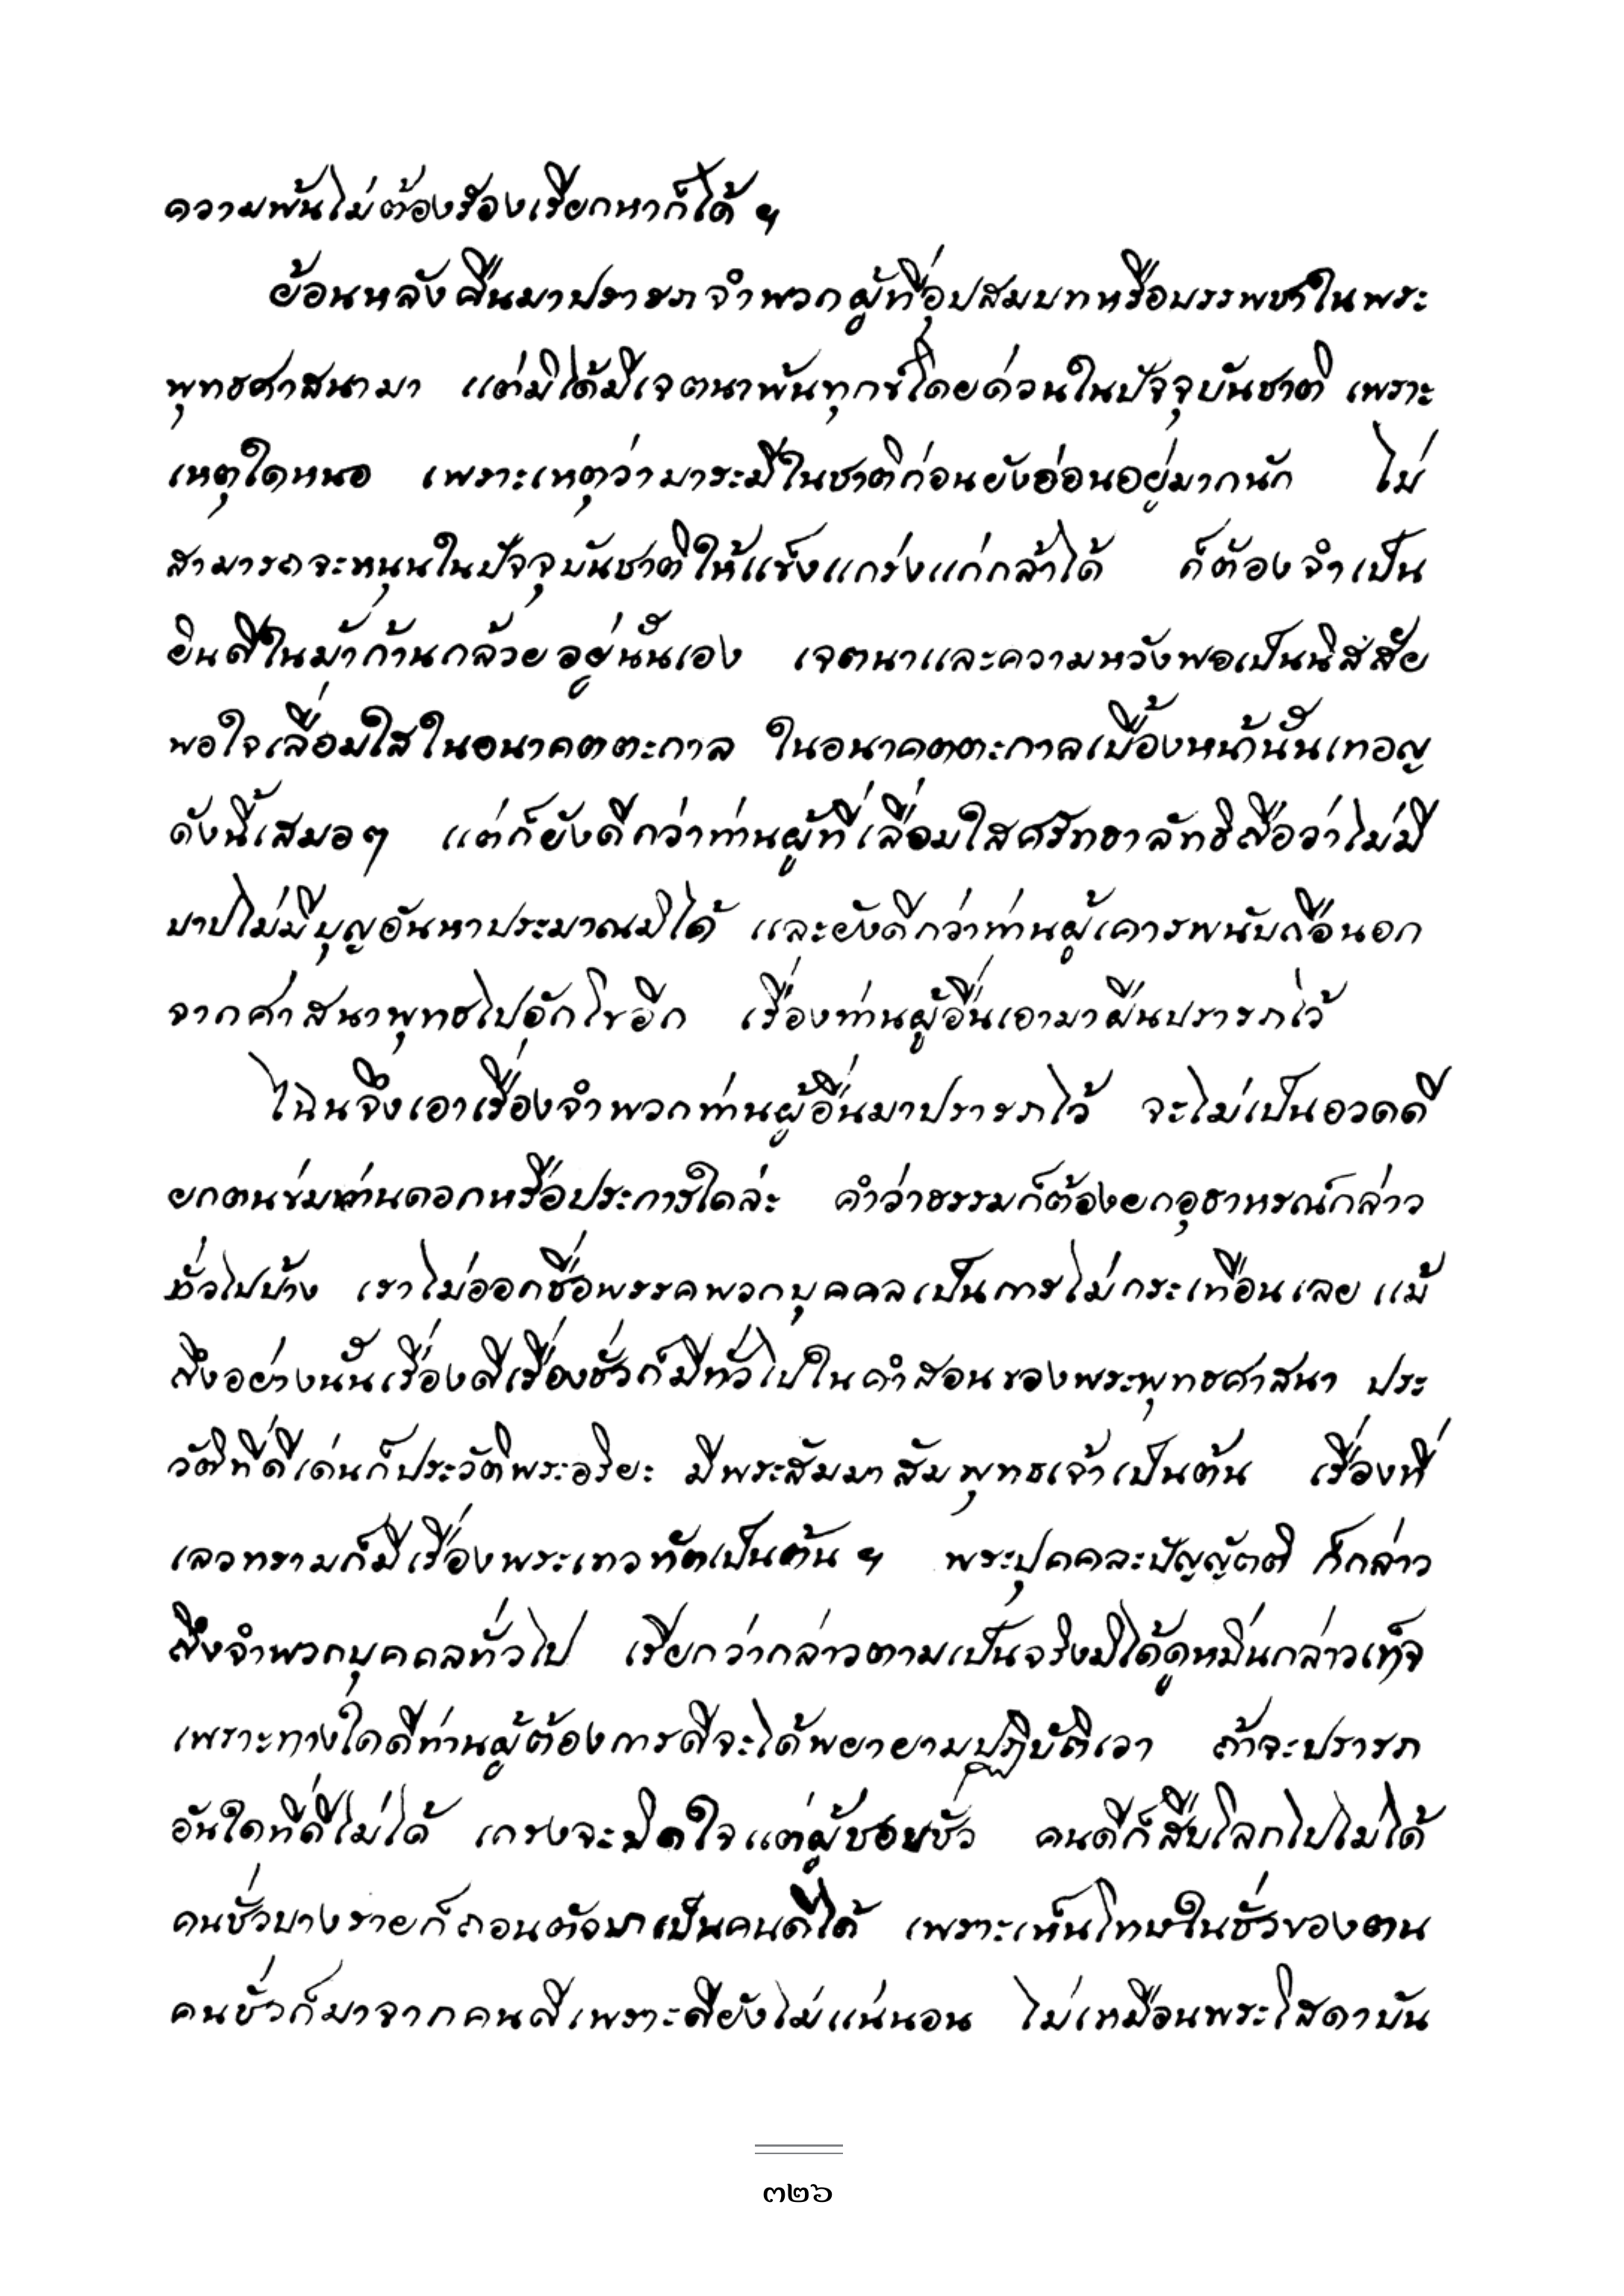 ความพ้นไม่ต้องร้องเรียกหาก็ได้ ฯ
ย้อนหลังคืนมาปรารภจำพวกผู้ที่อุปสมบทหรือบรรพชาในพระ
พุทธศาสนามา แต่มิได้มีเจตนาพ้นทุกข์โดยด่วนในปัจจุบันชาติ เพราะ
เหตุใดหนอ เพราะเหตุว่าบาระมีในชาติก่อนยังอ่อนอยู่มากนัก ไม่
สามารถจะหนุนในปัจจุบันชาติให้แข็งแกร่งแก่กล้าได้ ก็ต้องจำเป็น
ยินดีในม้าก้านกล้วยอยู่นั้นเอง เจตนาและความหวังพอเป็นนิสสัย
พอใจเลื่อมใสในอนาคตตะกาล ในอนาคตตะกาลเบื้องหน้านั้นเทอญ
ดังนี้เสมอๆ แต่ก็ยังดีกว่าท่านผู้ที่เลื่อมใสศรัทธาลัทธิถือว่าไม่มี
บาปไม่มีบุญอันหาประมาณมิได้ และยังดีกว่าท่านผู้เคารพนับถือนอก
จากศาสนาพุทธไปอักโขอีก เรื่องท่านผู้อื่นเอามาฝืนปรารภไว้
ไฉนจึงเอาเรื่องจำพวกท่านผู้อื่นมาปรารภไว้ จะไม่เป็นอวดดี
ยกตนข่มท่านดอกหรือประการใดล่ะ คำว่าธรรมก็ต้องยกอุธาหรณ์กล่าว
ทั่วไปบ้าง เราไม่ออกชื่อพรรคพวกบุคคลเป็นการไม่กระเทือนเลย แม้
ถึงอย่างนั้นเรื่องดีเรื่องชั่วก็มีทั่วไปในคำสอนของพระพุทธศาสนา ประ
วัติที่ดีเด่นก็ประวัติพระอริยะ มีพระสัมมาสัมพุทธเจ้าเป็นต้น เรื่องที่
เลวทรามก็มีเรื่องพระเทวทัตเป็นต้น ฯ พระปุคคละปัญญัตติ ก็กล่าว
ถึงจำพวกบุคคลทั่วไป เรียกว่ากล่าวตามเป็นจริงมิได้ดูหมิ่นกล่าวเท็จ
เพราะทางใดดีท่านผู้ต้องการดีจะได้พยายามปฏิบัติเอา ถ้าจะปรารภ
อันใดที่ดีไม่ได้ เกรงจะผิดใจแต่ผู้ชอบชั่ว คนดีก็สืบโลกไปไม่ได้
คนชั่วบางรายก็ถอนตัวมาเป็นคนดีได้ เพราะเห็นโทษในชั่วของตน
คนชั่วก็มาจากคนดีเพราะดียังไม่แน่นอน ไม่เหมือนพระโสดาบัน
๓๒๖